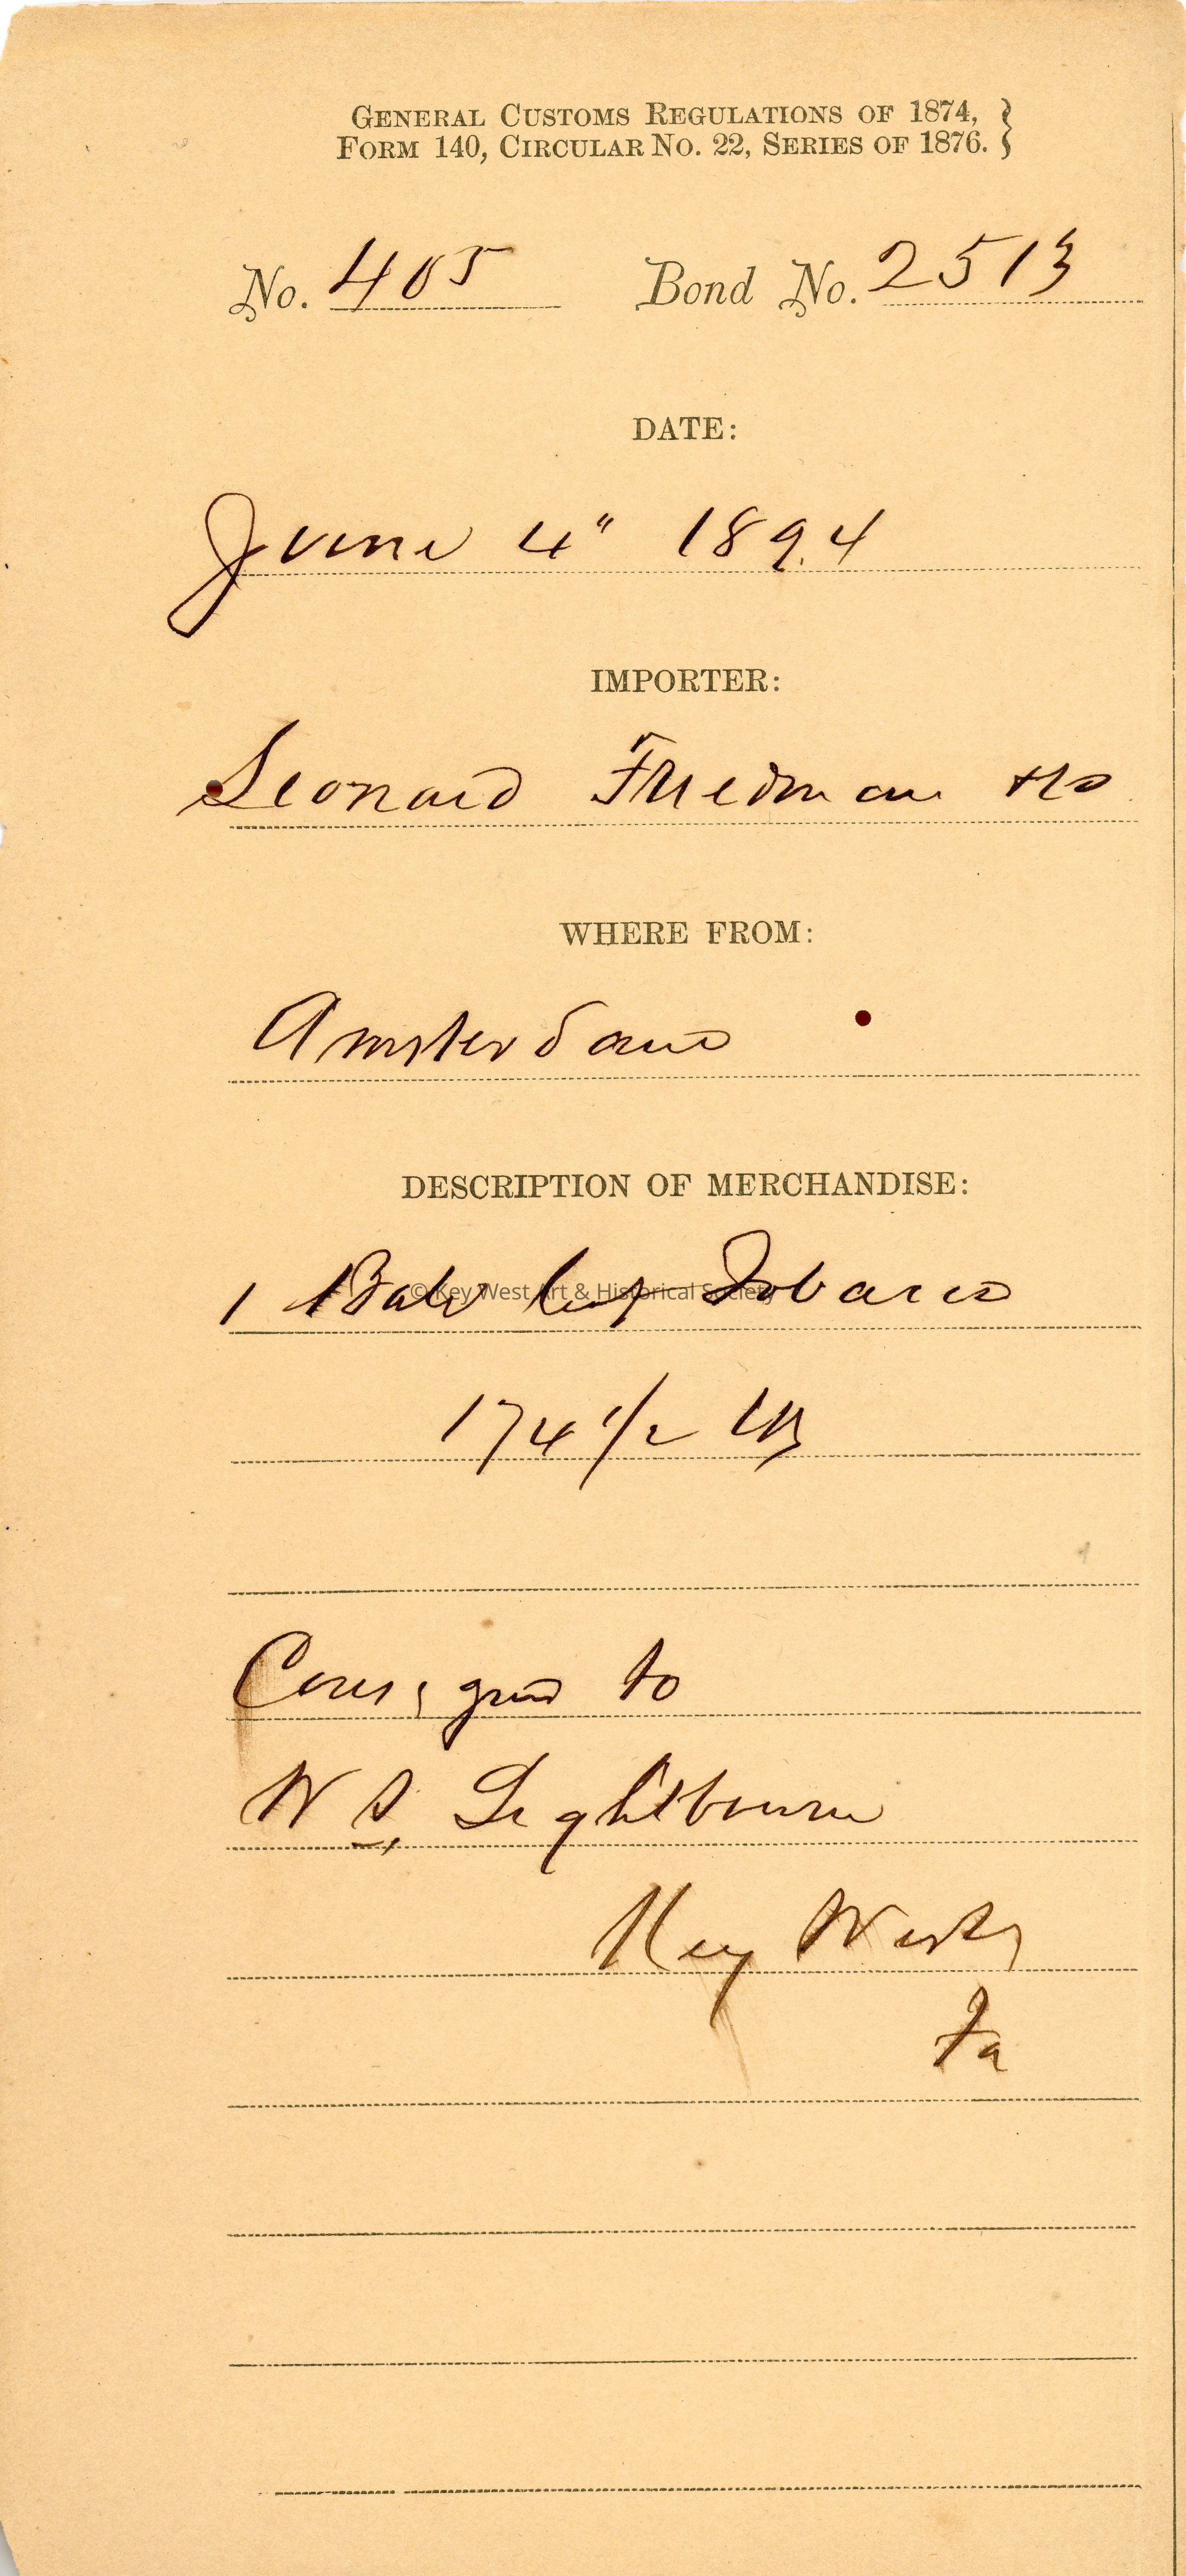 GENERAL CUSTOMS REGULATIONS OF 1874,
FORM 140, CIRCULAR NO. 22, SERIES OF 1876.
No. 405 Bond No. 2513
DATE:
June 4" 1894
IMPORTER:
Leonard Friedman &Co
WHERE FROM:
Amsterdam
DESCRIPTION OF MERCHANDISE:
1 Bale Leaf Tobacco
© Key West Art & Historical Society
174 1/2 lbs
Consigned to
W S, Lightbourn
Key West,
Fa